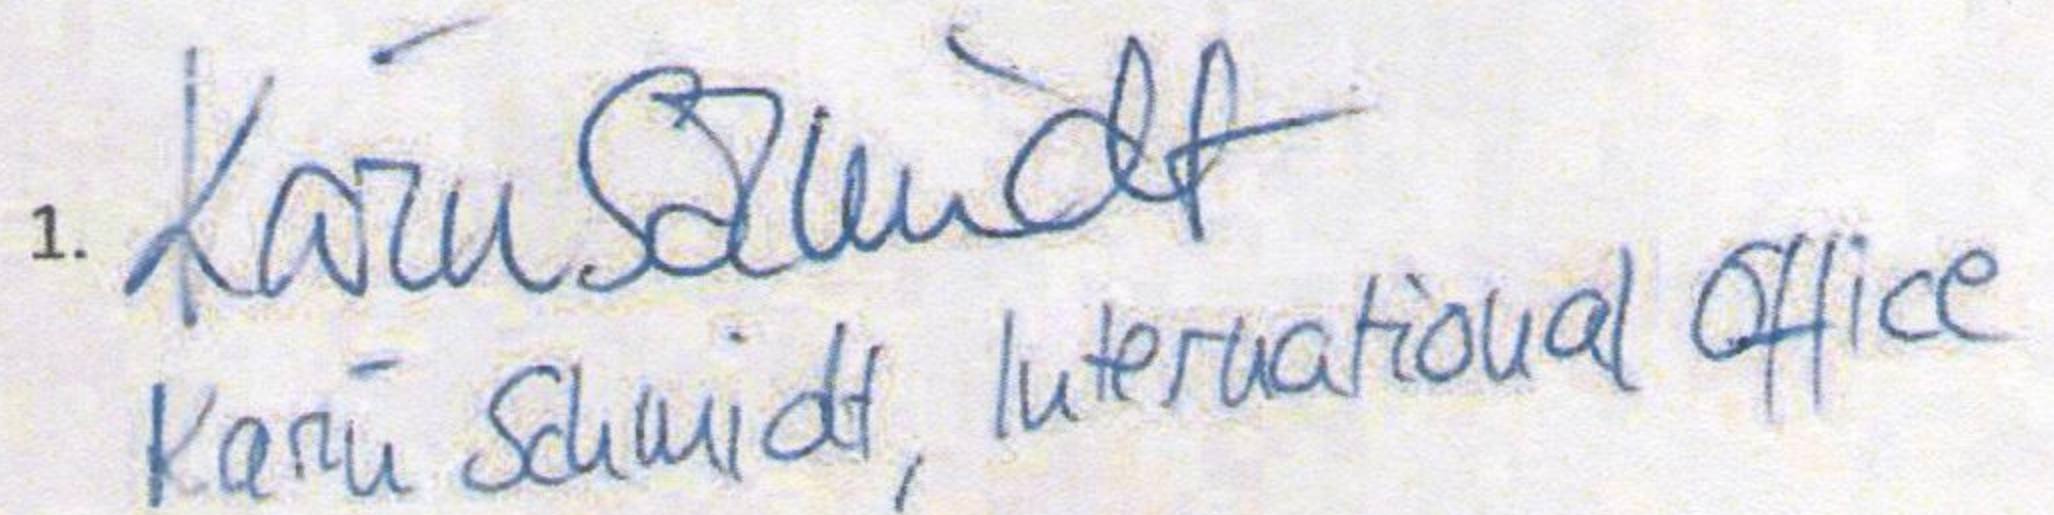 1. Karin Schmidt
Karin Schmidt, International Office